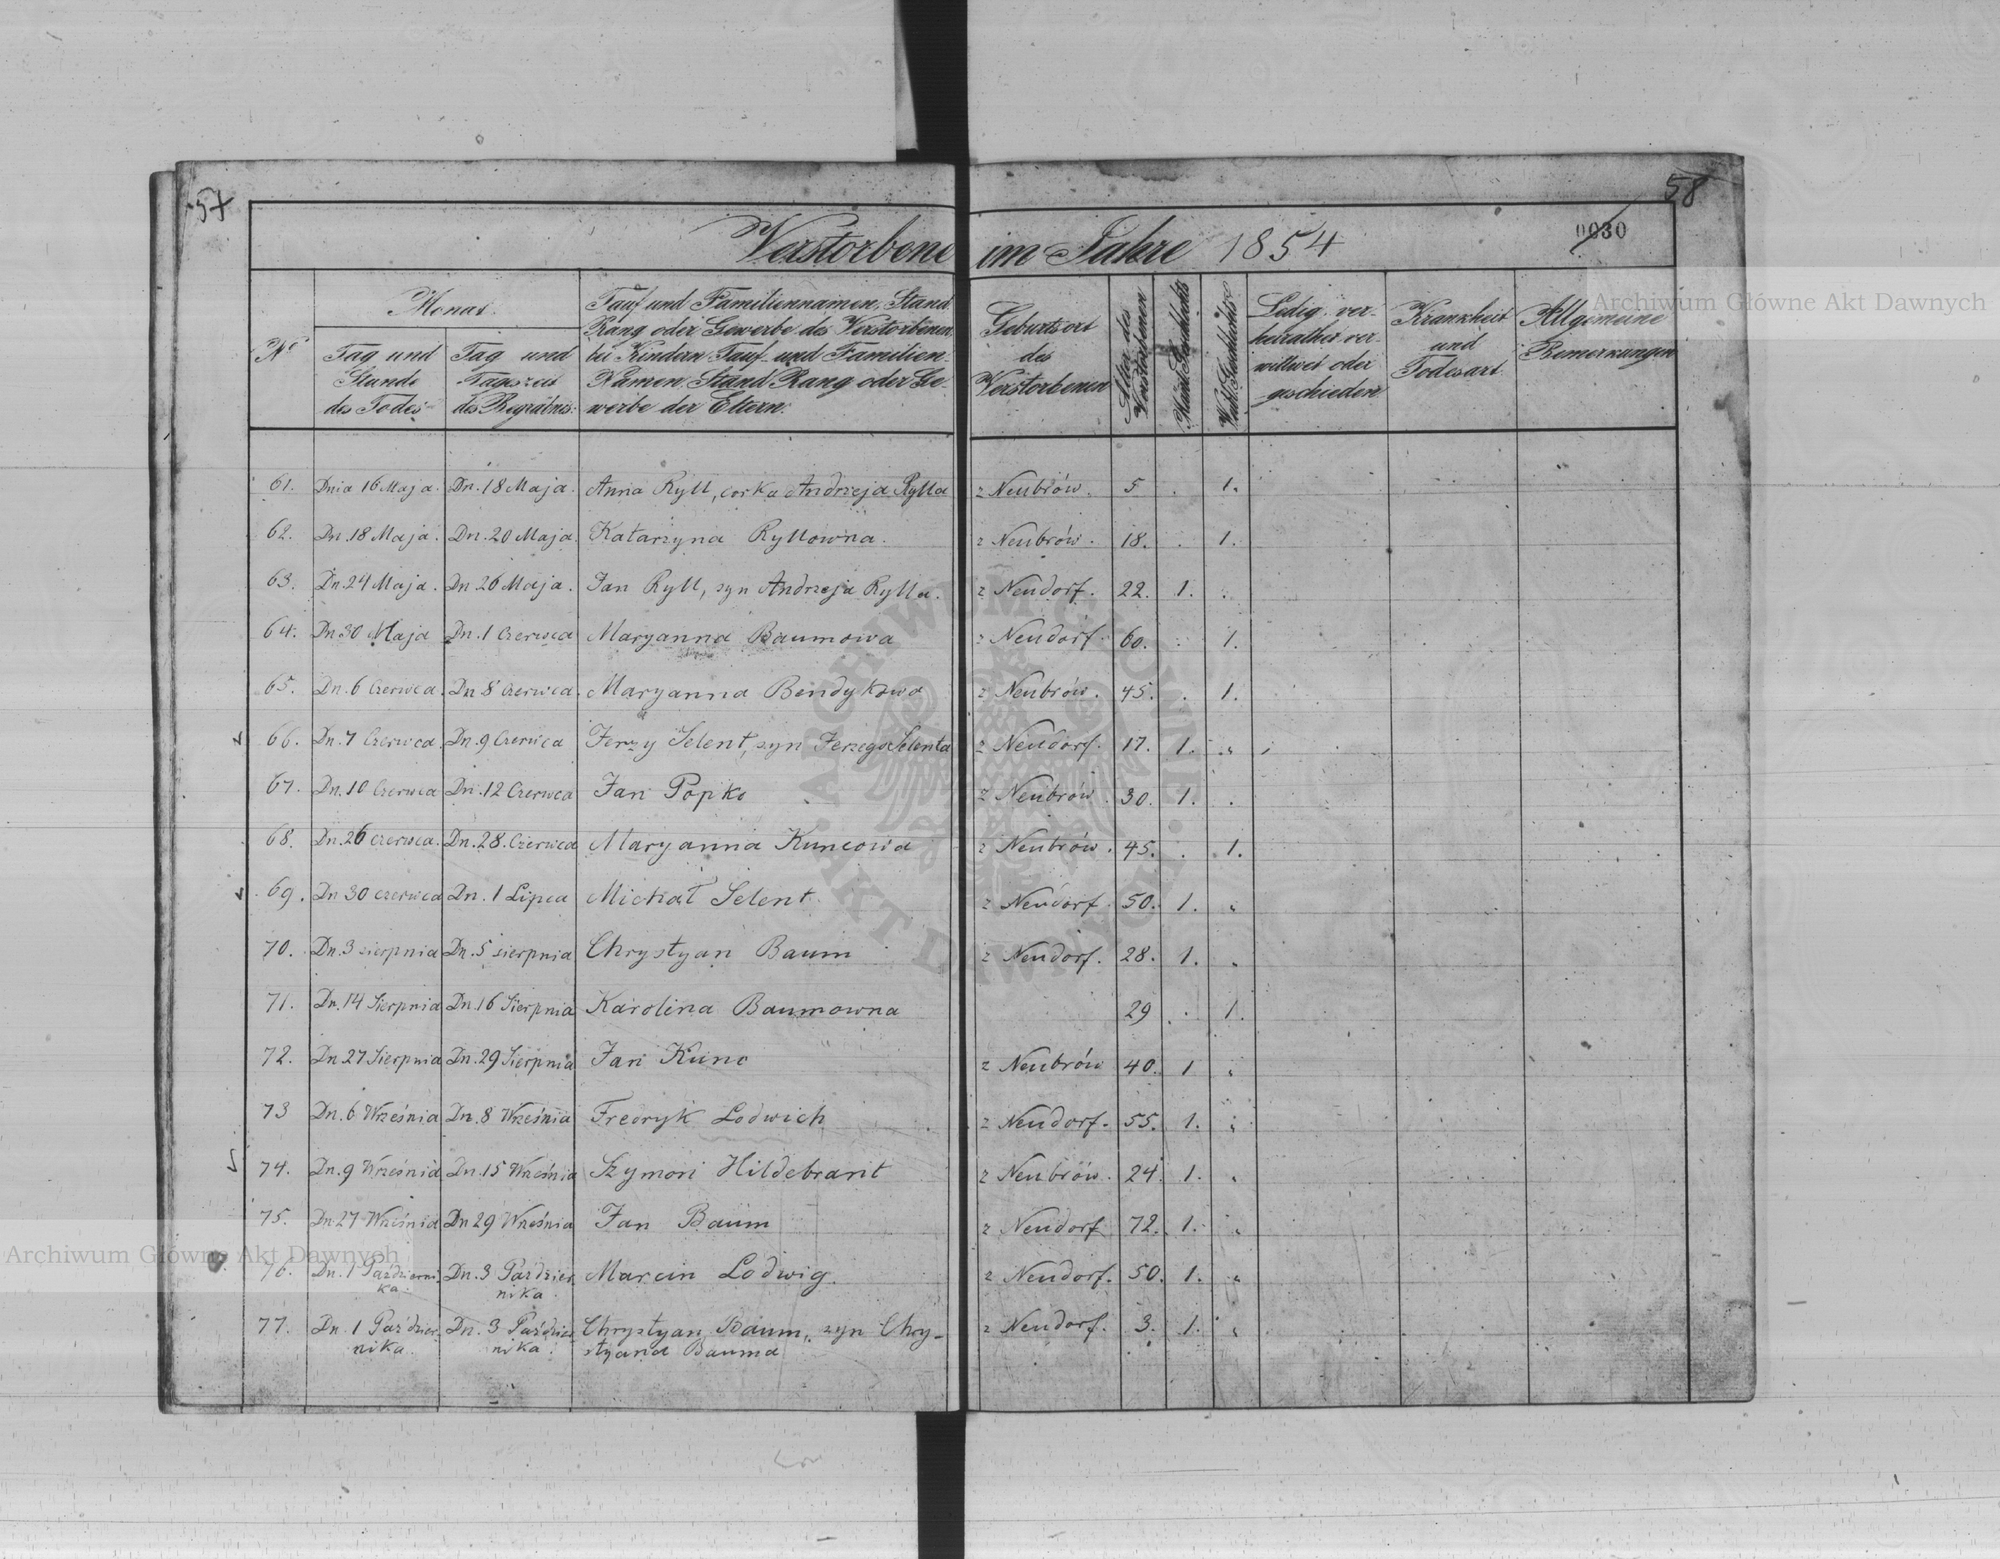 57
58
Verstorbene im Jahre 1854
0030
Archiwum Główne Akt Dawnych
Nº
Monat
Tag und Stunde des Todes
Tag und Tageszeit des Begräbnis.
Tauf und Familiennamen, Stand
Rang oder Gewerbe des Verstorbenen,
bei Kindern Tauf und Familien-
Namen, Stand Rang oder Ge-
werbe der Eltern.
Geburtsort des Verstorbenen
Alter des Verstorbenen
Mänl. Geschlechts
Weibl. Geschlechts
Ledig, ver-
heirathet ver-
wittwet oder
geschieden
Krankheit und Todesart
Allgemeine Bemerkungen
61. Dnia 16 Maja. Dn. 18 Maja. Anna Ryll, corka Andrzeja Rylla z Neubrów. 5 . 1.
62. Dn. 18 Maja. Dn. 20 Maja. Katarzyna Ryllowna. z Neubrów. 18. . 1.
63. Dn. 24 Maja. Dn 26 Maja. Jan Ryll, syn Andrzeja Rylla. z Neudorf. 22. 1. .
64. Dn 30 Maja Dn. 1 Czerwca Maryanna Baumowa z Neudorf. 60. . 1.
65. Dn. 6 Czerwca. Dn 8 Czerwca. Maryanna Bendykowa z Neubrów. 45. . 1.
66. Dn. 7 Czerwca Dn. 9 Czerwca Jerzy Selent, syn Jerzego Selenta z Neudorf. 17. 1. "
67. Dn. 10 Czerwca Dn. 12 Czerwca Jan Popko z Neubrów. 30. 1. .
68. Dn. 26 Czerwca. Dn. 28. Czerwca Maryanna Kuncowa z Neubrów. 45. . 1.
69. Dn 30 Czerwca Dn. 1 Lipca Michał Selent z Neudorf. 50. 1. "
70. Dn. 3 sierpnia Dn. 5 sierpnia Chrystyan Baum z Neudorf. 28. 1. "
71. Dn. 14 Sierpnia Dn. 16 Sierpnia Karolina Baumowna 29 . 1.
72. Dn 27 Sierpnia Dn. 29 Sierpnia Jan Kunc z Neubrów 40. 1 "
73 Dn. 6 Września Dn. 8 Września Fredryk Lodwich z Neudorf. 55. 1. "
74. Dn. 9 Września Dn. 15 Września Szymon Hildebrant z Neubrów. 24 1. "
75. Dn 27 Września Dn 29 Września Jan Baum z Neudorf 72. 1. "
76. Dn. 1 Październi Dn. 3 Paździer Marcin Lodwig. z Neudorf. 50. 1. "
ka. nika
77. Dn. 1 Paździer Dn. 3 Paździer Chrystyan Baum, syn Chry- z Neudorf. 3. 1. "
nika. nika. styana Bauma
Archiwum Główne Akt Dawnych
ARCHIWUM GŁÓWNE AKT DAWNYCH